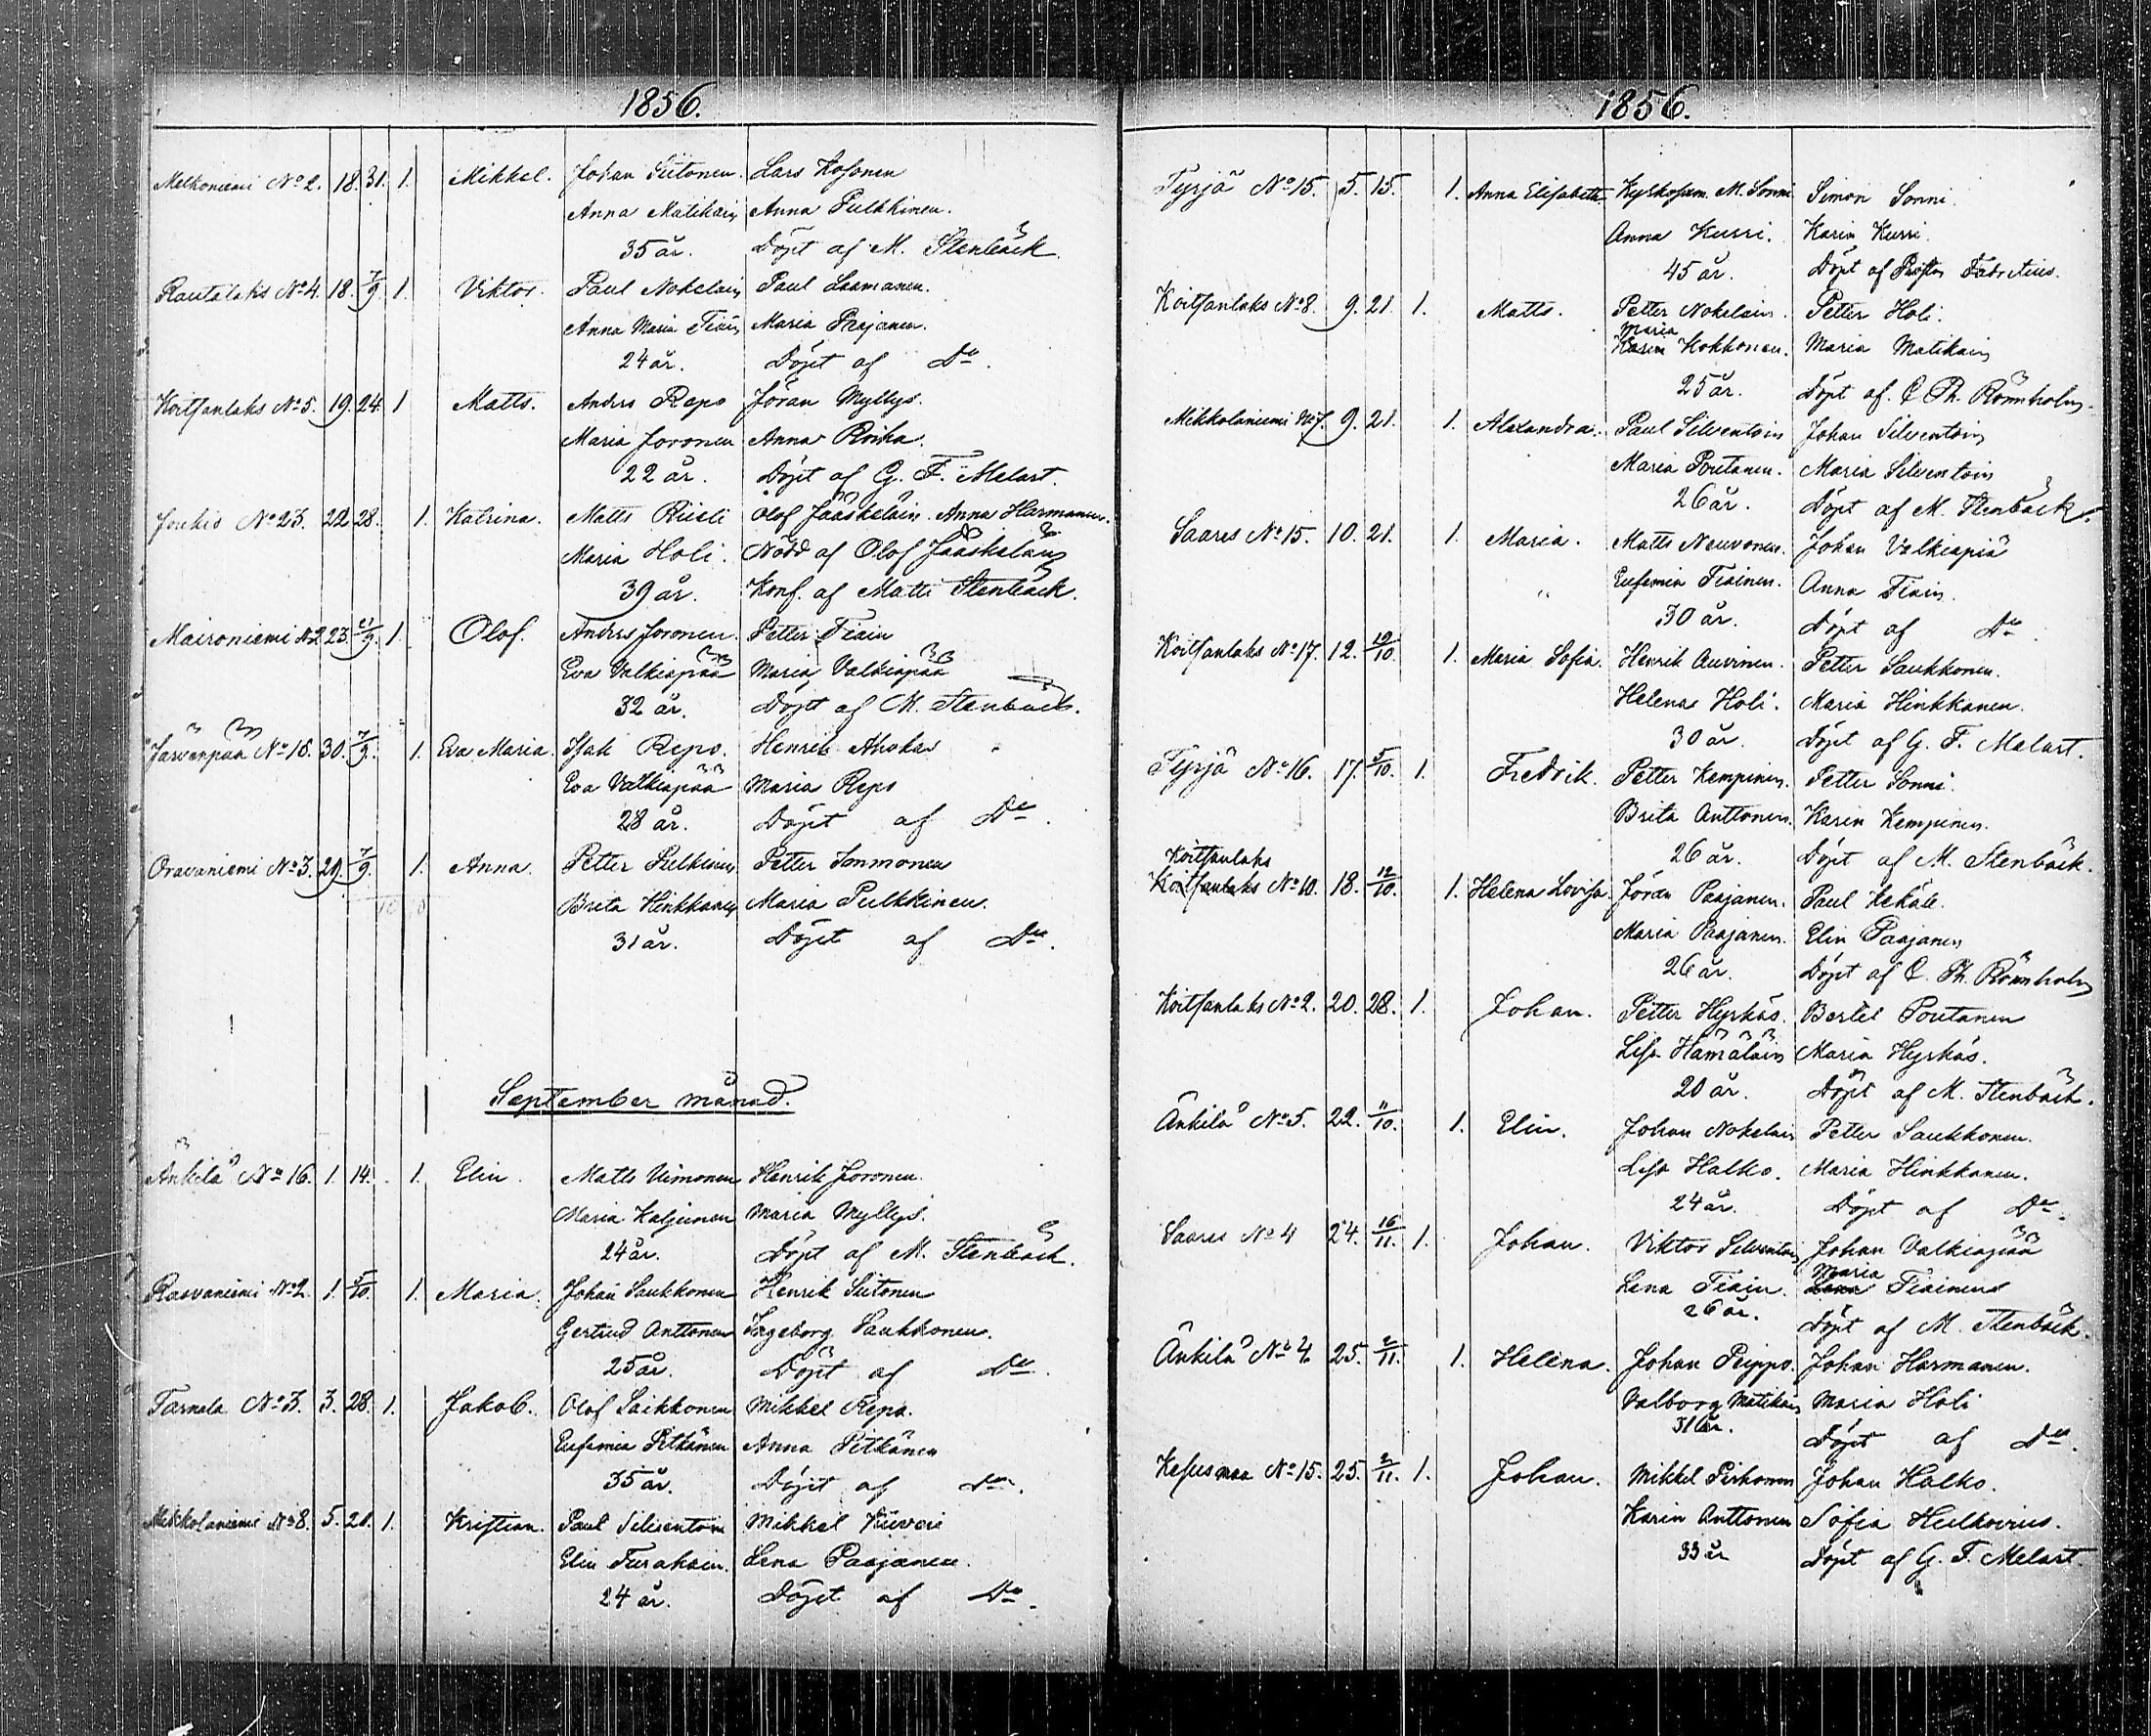 1856.
Matkoniemi No 2. 18. 31. 1. Mikkel. Johan Siitonen. Lars Kosonen
Anna Matikain Anna Pulkkinen.
35 år. Döpt af M. Stenbäck
Rautalaks No 4. 18. 7/9. 1. Viktor. Paul Nokelain Paul Laamanen.
Anna Maria Tiain Maria Paajanen.
24 år. Döpt af Do
Koitsanlaks No 5. 19. 24. 1 Matts. Anders Repo Jöran Myllys.
Maria Joronen Anna Roiha.
22 år. Döpt af G. F. Melart.
Joukio No 23. 22 28. 1. Katrina. Matts Riieli Olof Jääskeläin. Anna Harmanen.
Maria Holi. Nödd af Olof Jääskeläin
39 år. Konf. af Matts Stenbäck.
Maironiemi No 2 23. 21/9. 1. Olof. Anders Joronen. Petter Tiain
Eva Valkiapää Maria Valkiapää
32 år. Döpt af M. Stenbäck.
Järvenpää No 18. 30. 7/9. 1. Eva Maria. Isak Repo. Henrik Ahokas
Eva Valkiapää Maria Repo
28 år. Döpt af Do.
Oravaniemi No 3. 29. 7/9. 1. Anna. Petter Pulkinen Petter Immonen
Brita Hinkkanen Maria Pulkkinen.
31 år. Döpt af Do.
September månad.
Änkilä No 16. 1. 14. 1. Elin. Matts Uimonen Henrik Joronen.
Maria Kaljunen Maria Myllys.
24 år. Döpt af M. Stenbäck.
Rasvaniemi No 2. 1. 5/10. 1. Maria. Johan Saukkonen Henrik Siitonen
Gertrud Anttonen Ingeborg Saukkonen.
25 år. Döpt af Do.
Tarnala No 3. 3. 28. 1. Jakob. Olof Saikkonen Mikkel Repo.
Eufemia Pitkänen Anna Pitkänen
35 år. Döpt af Do.
Mikkolaniemi No 8. 5. 21. 1. Kristian. Paul Silventoin Mikkel
Elin Turakain. Lena Paajanen.
24 år. Döpt af Do.
1856.
Tyrjä No 15. 5. 15. 1. Anna Elisabeth. M. Sonni Simon Sonni.
Anna Kurri. Karin Kurri.
45 år. Döpt af Fabritius.
Koitsanlaks No 8. 9. 21. 1. Matts. Petter Nokelain. Petter Holi.
Maria
Karin Kokkonen. Maria Matikain
25 år. Döpt af C. Th. Rönnholm.
Mikkolaniemi No 7. 9. 21. 1. Alexandra. Paul Silventoin Johan Silventoin
Maria Poutanen. Maria Silventoin
26 år. Döpt af M. Stenbäck.
Saares No 15. 10. 21. 1. Maria. Matts Neuvonen. Johan Valkiapää
Eufemia Tiainen. Anna Tiain.
30 år. Döpt af Do.
Koitsanlaks No 17. 12. 19/10. 1. Maria Sofia. Henrik Auvinen. Petter Saukkonen.
Helena Holi. Maria Hinkkanen.
30 år. Döpt af G. F. Melart.
Tyrjä No 16. 17. 5/10. 1. Fredrik. Petter Kempinen. Petter Sonni.
Brita Anttonen. Karin Kempinen.
26 år. Döpt af M. Stenbäck.
Koitsanlaks
Koitsanlaks No 10. 18. 12/10. 1. Helena Lovisa. Jöran Paajanen. Paul Kekäle.
Maria Paajanen. Elin Paajanen
26 år. Döpt af C. Th. Rönnholm
Koitsanlaks No 2. 20. 28. 1. Johan. Petter Hyrkäs. Bertel Poutanen
Lisa Hämäläin Maria Hyrkäs.
20 år. Döpt af M. Stenbäck.
Änkilä No 5. 22. 11/10. 1. Elin. Johan Nokelain Petter Saukkonen.
Lisa Halko. Maria Hinkkanen.
24 år. Döpt af Do.
Saares No 4 24. 16/11. 1. Johan. Viktor Silventoin Johan Valkiapää
Maria
Lena Tiain. Lena Tiainen
26 år. Döpt af M. Stenbäck.
Änkilä No 4. 25. 2/11. 1. Helena. Johan Peippo. Johan Harmanen.
Valborg Matikain Maria Holi
31 år. Döpt af Do.
Kesusmaa No 15. 25. 2/11. 1. Johan. Mikkel Pirhonen Johan Halko.
Karin Anttonen Sofia
33 år Döpt af G. F. Melart